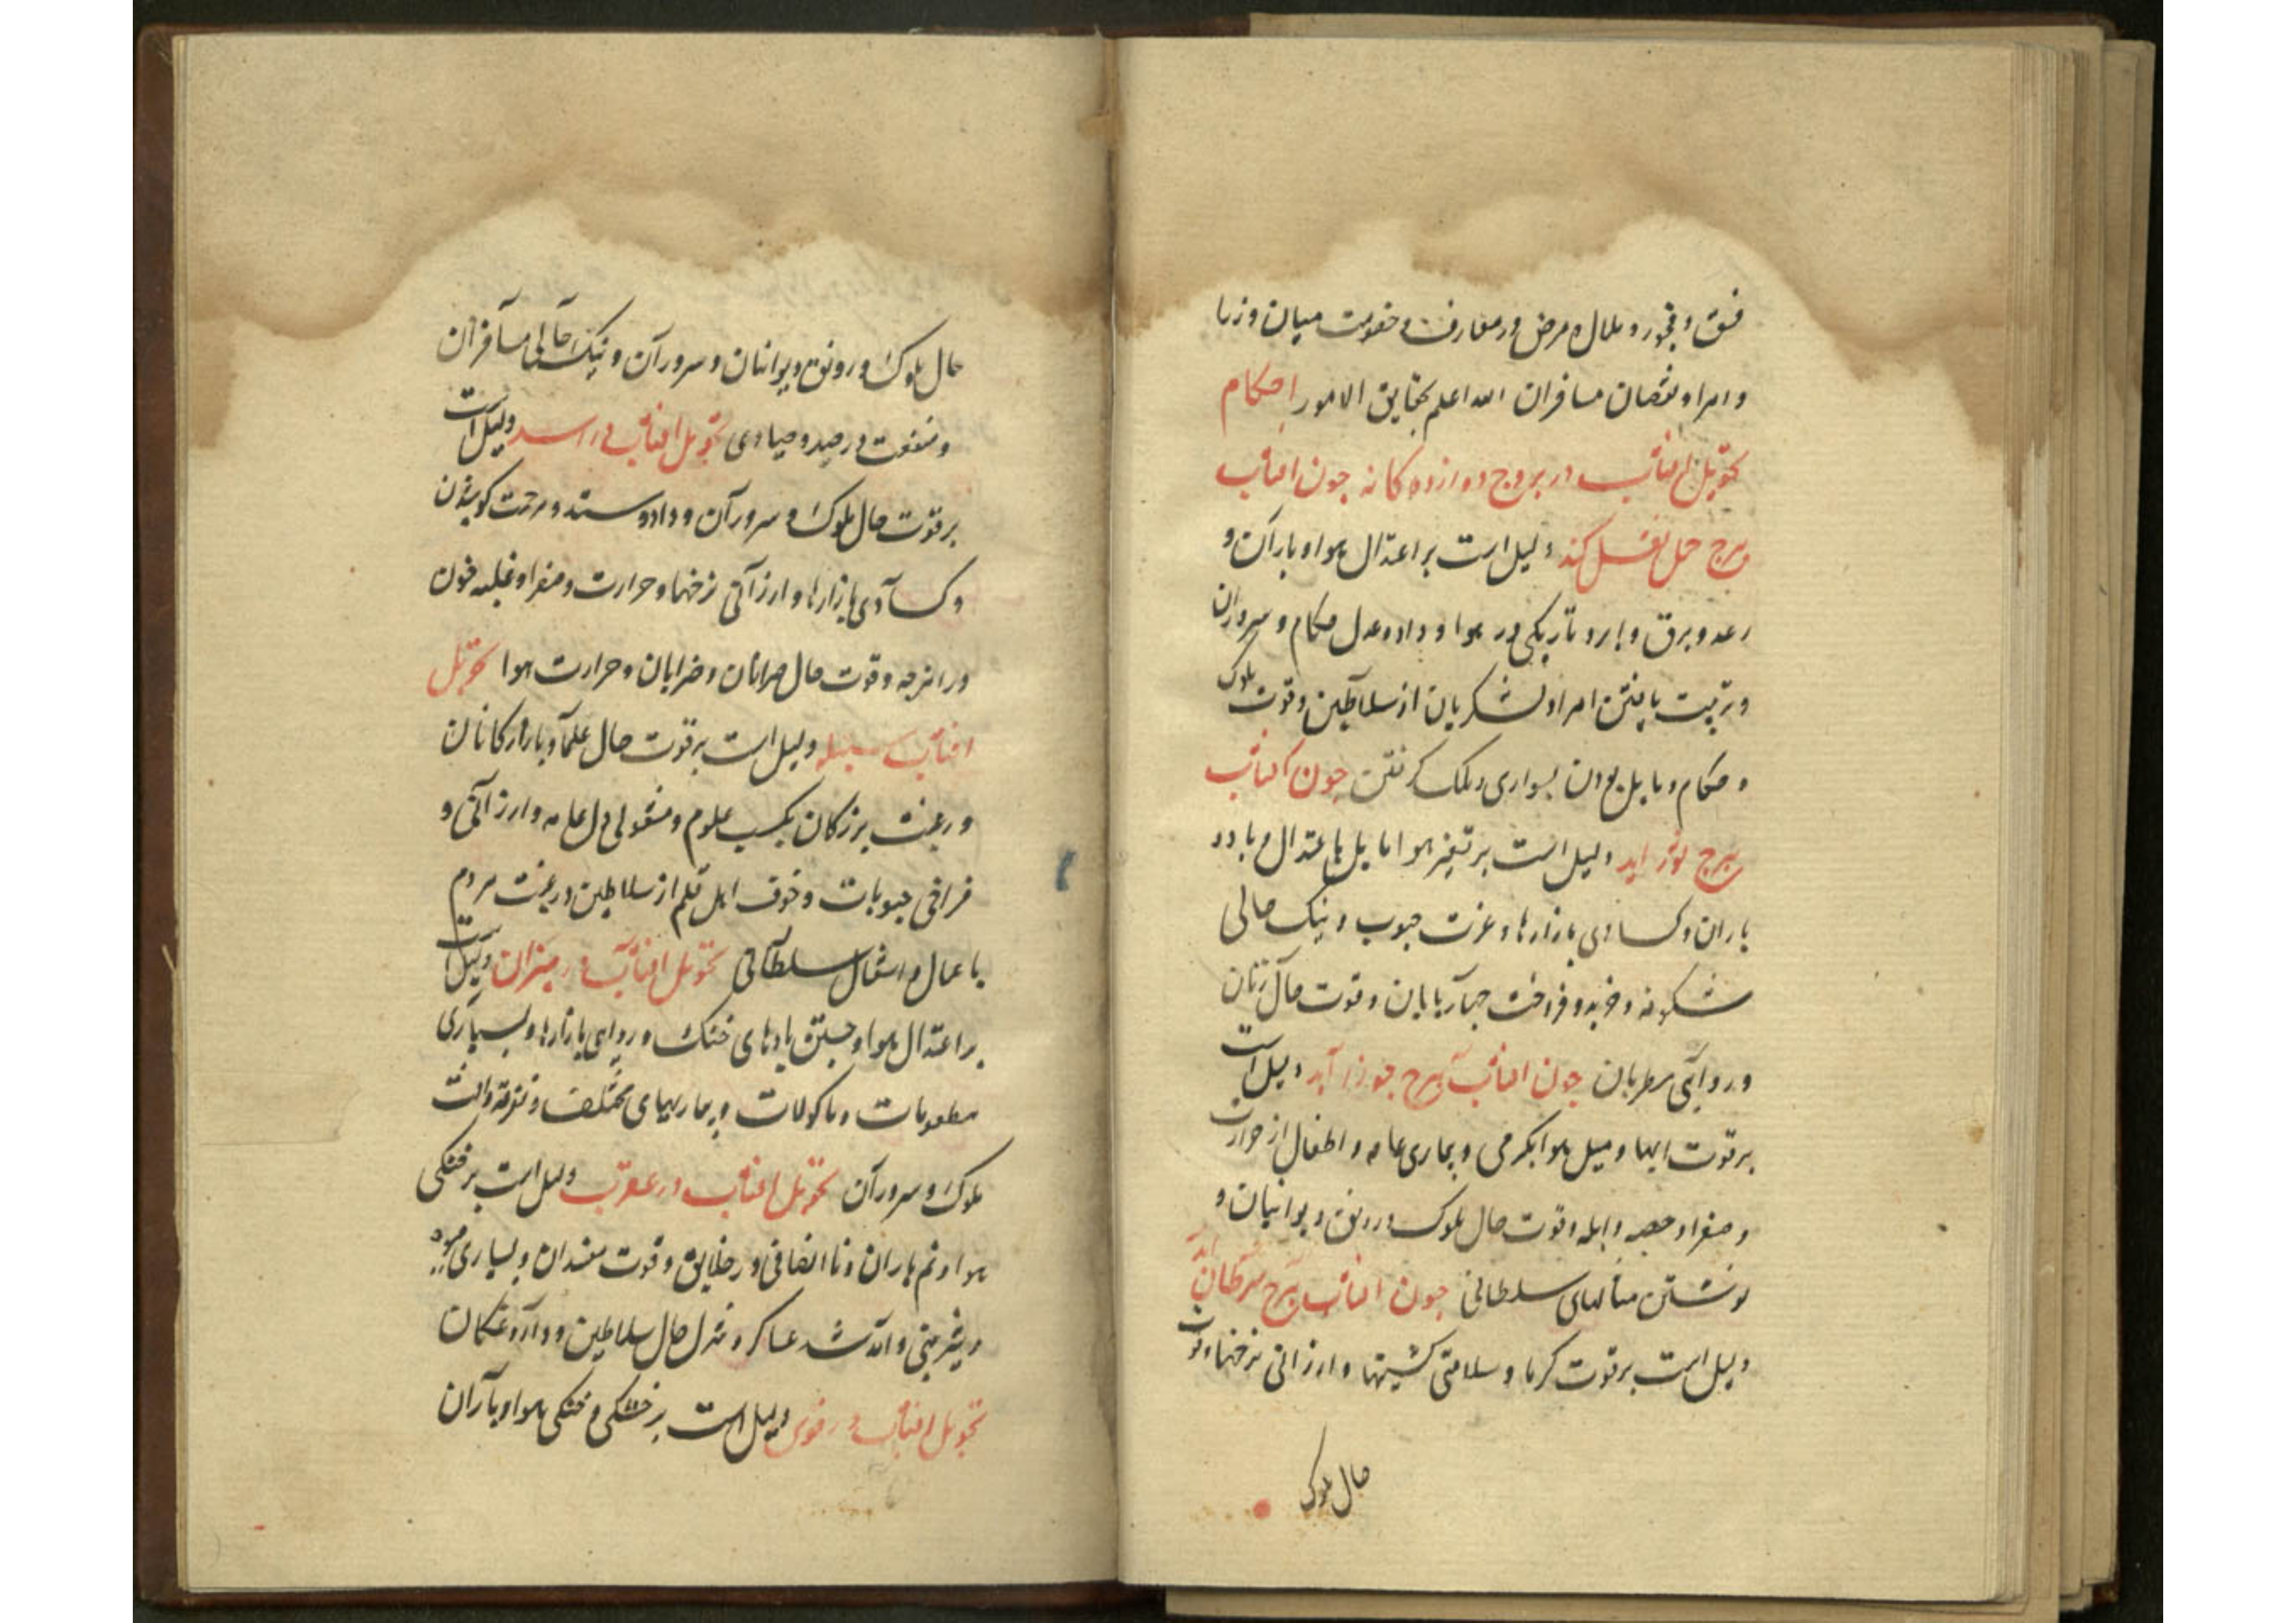 فسق و فجور و ملال و مرض و رمفارف و خصومت میان وزرا
و امرا و نقصان مسافران الله اعلم بحقایق الامور احکام
تحویل افتاب در بروج دوازده کانه چون افتاب
ببرج حمل نقل کند دلیل است بر اعتدال هوا و باران و
رعد و برق و بارد تاریکی در هوا و داد و عدل حکام و سروران
و تربیت یافتن امرا و لشکریان از سلاطین و قوت ملوک
و حکام و مایل بودن بسواری و ملک کرفتن چون افتاب
ببرج ثور اید دلیل است بر تغیر هوا مایل باعتدال و باد و
باران و کسادی بازارها و عزت حبوب و نیک حالی
شکوفه و خرید و فروخت چهارپایان و قوت حال زنان
و روایی مطربان چون افتاب ببرج جوزا آید دلیل است
بر قوت ابها و میل هوا بکرمی و بیماری عامه و اطفال از حرارت
و صفرا و حصبه و ابله و قوت حال ملوک و رونق دیوانیان و
نوشتن مثالهای سلطانی چون افتاب ببرج سرطان اید
دلیل است بر قوت کرما و سلامتی کشتیها و ارزانی نرخها و قوت
حال ملوک
حال ملوک و رونق دیوانیان و سروران و نیک حالی مسافران
و منفعت در صید و صیادی تحویل افتاب در اسد دلیل است
بر قوت حال ملوک و سروران و داد و ستد و مرحمت کوشیدن
و کسادی بازارها و ارزانی نرخها و حرارت و صفرا و غلبه خون
در امزجه و قوت حال صرافان و ضرابان و حرارت هوا تحویل
افتاب سنبله دلیل است بر قوت حال علما و بازارکانان
و رغبت بزرکان بکسب علوم و مشغولی دل عامه و ارزانی و
فراخی حبوبات و خوف اهل قلم از سلاطین و رغبت مردم
با عمال و اشغال سلطانی تحویل افتاب در میزان دلیل است
بر اعتدال هوا و جستن بادهای خنک و روای بازارها و بسیاری
مطعومات و ماکولات و بیماریهای مختلف و تفرقه و الفت
ملوک و سروران تحویل افتاب در عقرب دلیل است بر خنکی
هوا و نم باران و ناانصافی در خلایق و قوت مفسدان و بسیاری میوه
و شیرینی و آمد شد عساکر و تنزل حال سلاطین و داروغکان
تحویل افتاب در قوس دلیل است بر خشکی و خنکی هوا و باران